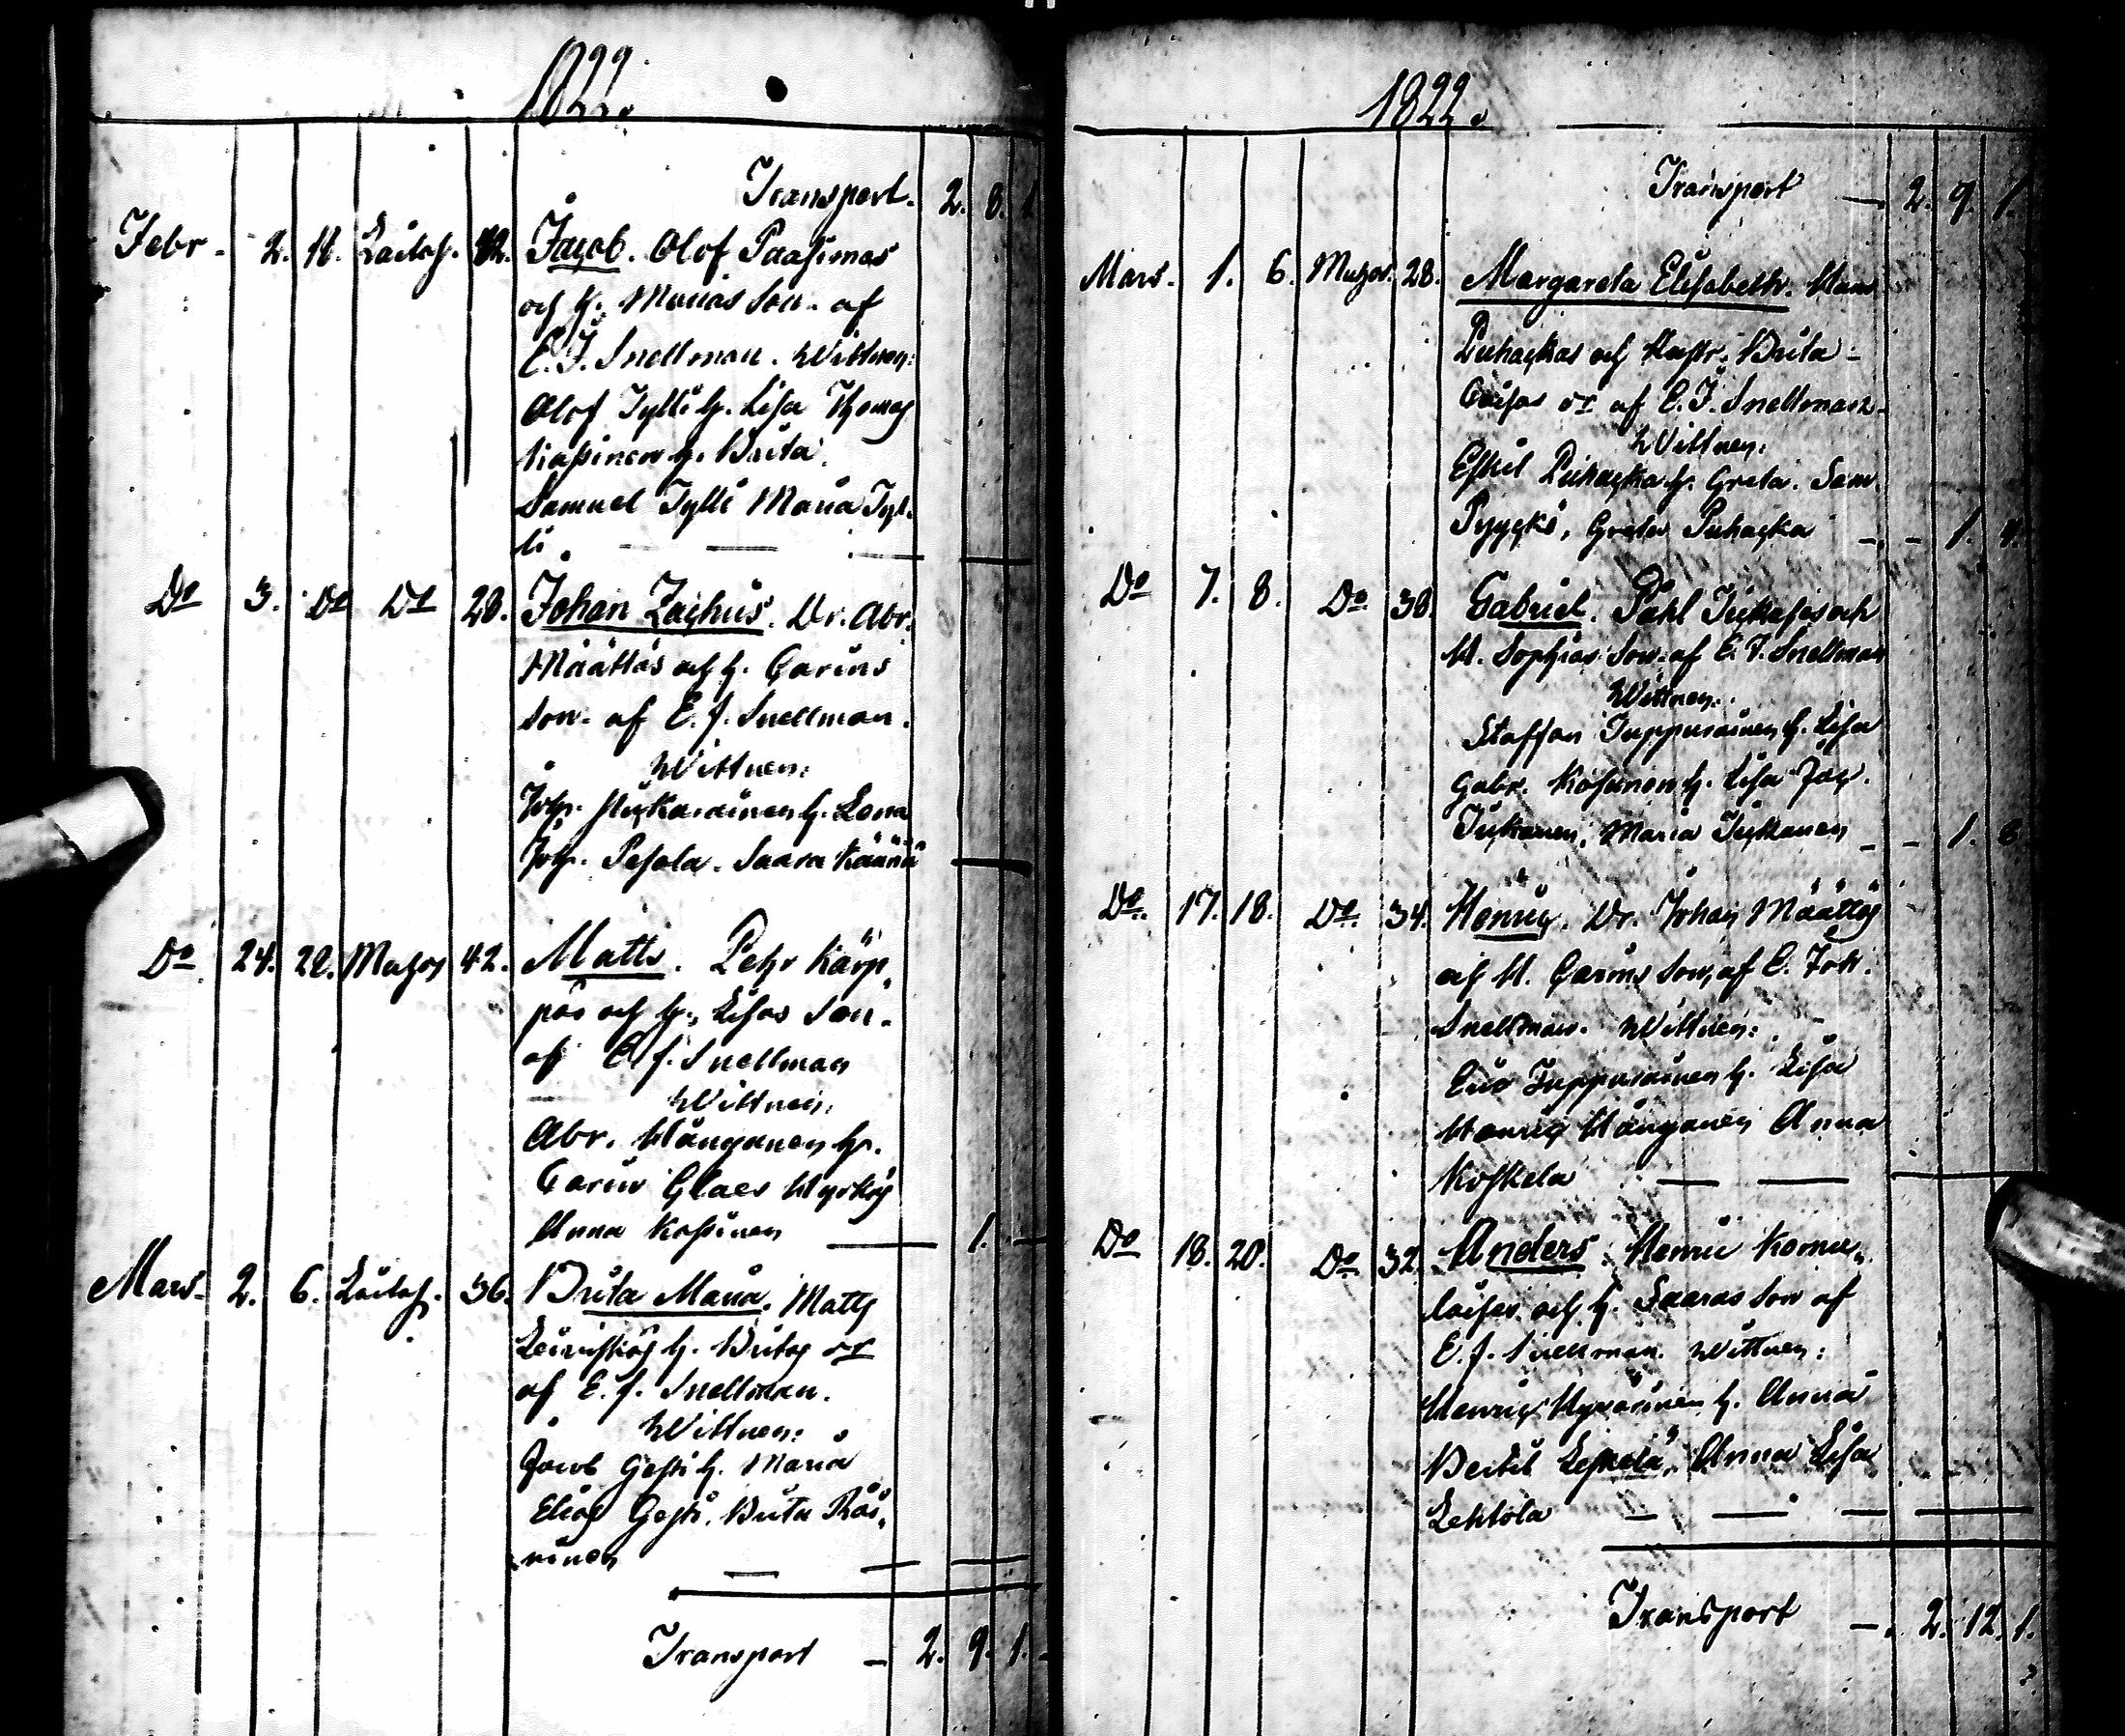 1822.
Transport. 2. 8. 1
Febr. 2. 11. 42. Jacob. Olof Paasimas
och h. Marias Son. af
E. J. Snellman. Wittnen:
Olof Tylli h. Lisa Thomas
h. Brita.
Samuel Tylli Maria Tyl-
li
Do 3. Do Do 28. Johan Zachus. Dr. Abr.
Määttäs och h. Carins
Son. af E. J. Snellman.
Wittnen:
Joh. h. Lena
Joh. Pesola. Saara
Do 24. 28. 42. Matts. Pehr Kärp-
päs och h. Lisas Son.
af E J. Snellman
Wittnen:
Abr. Hänganen h.
Carin Claes
Anna Kosinen 1.
Mars. 2. 6. 36. Brita Maria. Matts
h. Britas dr
af E. J. Snellman.
Wittnen:
Jacob Gesti h. Maria
Elias Gesti. Brita Räi-
sinen
Transport 2. 9. 1.
1822.
Transport 2. 9. 1.
Mars. 1. 6. 28. Margareta Elisabeth. Hans
Puhackas och Hustr. Brita
Caisas dr af E. J. Snellman.
Wittnen:
Eskil Puhacka h. Greta. Sam.
Pyycki, Greta Puhacka 1. 4.
Do 7. 8. Do 38. Gabriel. Påhl och
H. Sophias Son. af E. J. Snellman
Wittnen:
Staffan Juppurainen h. Lisa
Gabr. Kosunen h. Lisa Jac.
Maria 1. 8.
Do. 17. 18. Do. 34. Henric. Dr. Johan Määttäs
och H. Carins Son, af E. Joh.
Snellman. Wittnen:
Eric Juppurainen h. Lisa
Henric Hänganen Anna
Koskela
Do 18. 20. Do 32. Anders. Henric Komu-
laises och h. Saaras Son af
E. J. Snellman. Wittnen:
Henric Hyvärinen h. Anna
Bertil Anna Lisa
Lehtola
Transport 2. 12. 1.